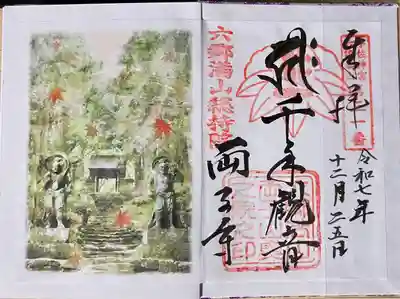 奉拝
令和七年
十二月二五日
千手觀音
六郷満山總持院
両子寺